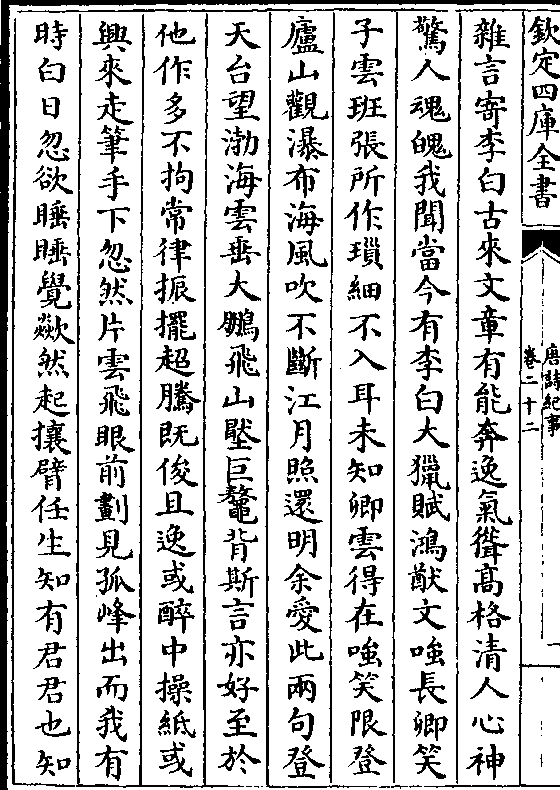 欽定四庫全書
唐詩紀事
卷二十二
一
雜言寄李白古來文章有能奔逸氣聳髙格清人心神
驚人魂魄我聞當今有李白大獵賦鴻猷文嗤長卿笑
子雲班張所作瑣細不入耳未知卿雲得在嗤笑限登
廬山觀瀑布海風吹不斷江月照還明余愛此兩句登
天台望渤海雲垂大鵬飛山壓巨鼇背斯言亦好至於
他作多不拘常律振擺超騰既俊且逸或醉中操紙或
興來走筆手下忽然片雲飛眼前劃見孤峰出而我有
時白日忽欲睡睡覺歘然起攘臂任生知有君君也知